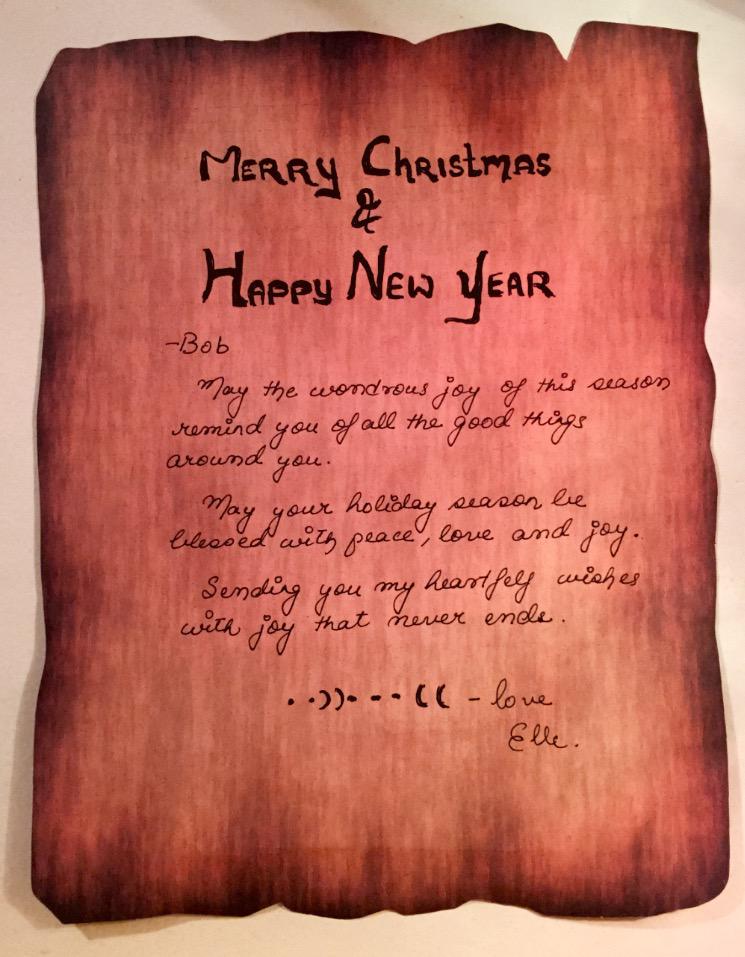 Merry Christmas
&
Happy New Year
-Bob
May the wondrous joy of this season
remind you of all the good things
around you.
May your holiday season be
blessed with peace, love and joy.
Sending you my heartfelf wishes
with joy that never ends.
• •))• - - - (( - love
Elle.